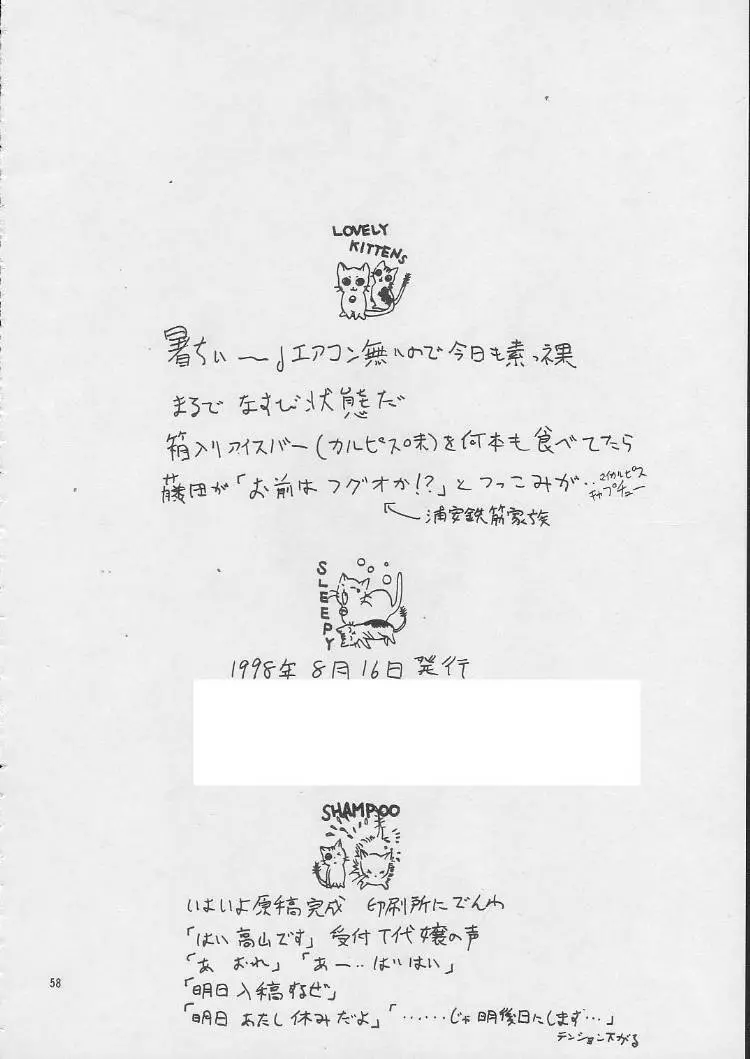 LOVELY
KITTENS
暑ちぃ〜♩エアコン無いので今日も素っ裸
まるで なすび状態だ
箱入りアイスバー(カルピス味)を何本も食べてたら
藤田が「お前は フグオか!?」とつっこみが‥
カルピス
チュー
浦安鉄筋家族
SLEEPY
1998年 8月 16日 発行
SHAMPOO
いよいよ原稿完成 印刷所にでんわ
「はい 高山です」 受付 T代嬢の声
「あ おれ」「あー‥はいはい」
「明日 入稿するぜ」
「明日 あたし休みだよ」「‥‥‥じゃ 明後日にします…」
テンション下がる
58